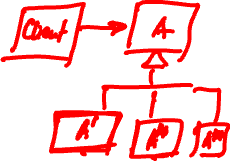 Client
A
A'
A''
A'''